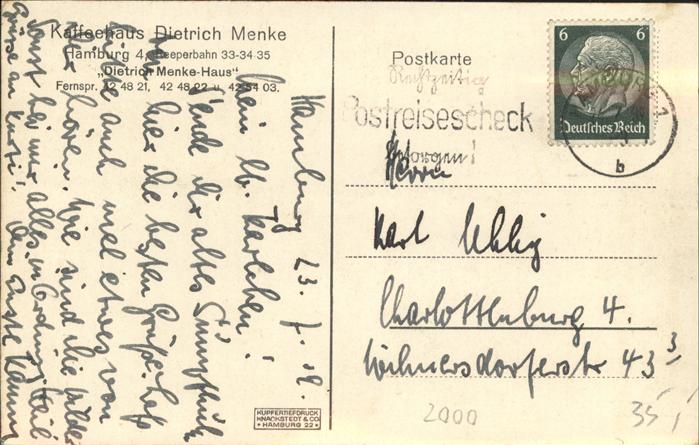 Kaffeehaus Dietrich Menke
Hamburg 4, Reeperbahn 33-34-35
„Dietrich Menke-Haus"
Fernspr. 42 48 21, 42 48 22 u. 42 54 03.
Hamburg 23. 7.
Mein lb. Karlchen!
alte
hier die besten Grüße. Laß
bitte auch mal etwas von
Dir hören. Wie sind die
Sonst bei mir alles in Ordnung. Heil
Grüße an Dein
Postkarte
Rechtzeitig
Postreisescheck
besorgen!
6 6
Deutsches Reich
1
b
Herrn
Karl Uhlig
Charlottenburg 4.
Wilmersdorferstr 43 3
KUPFERTIEFDRUCK
KNACKSTEDT & CO
• HAMBURG 22 •
2000
35,